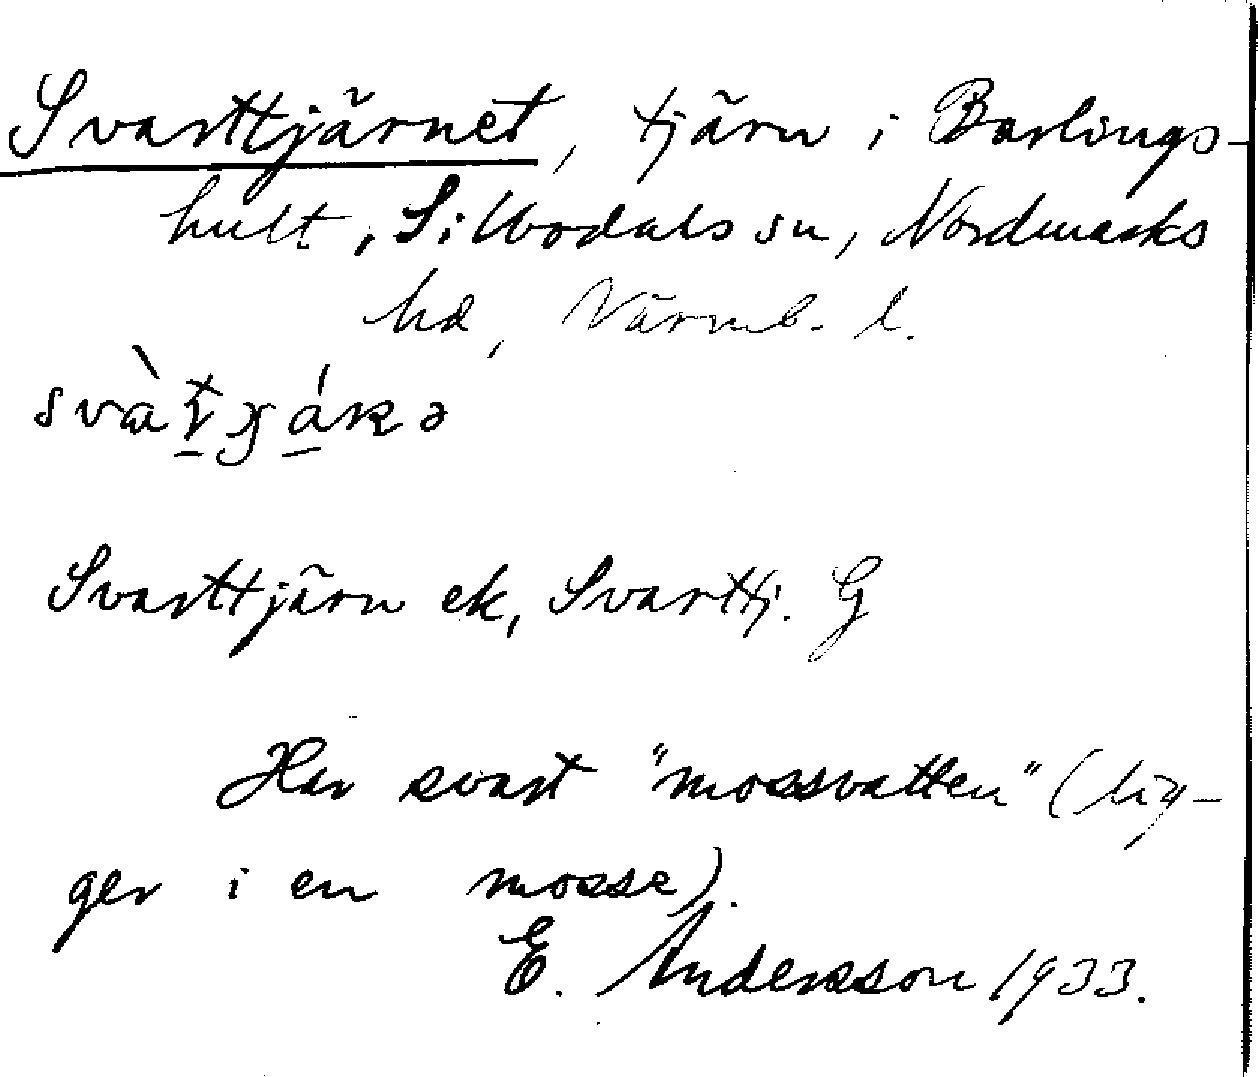 Svarttjärnet, tjärn i Barlings-
hult, Silbodals sn, Nordmarks
hd, Värml. l.
Svarttjärn ek, Svarttj. G
Har svart "mossvatten" (lig-
ger i en mosse).
E. Andersson 1933.